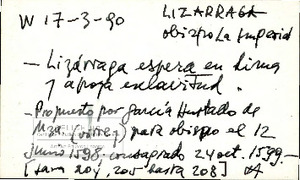 W 17-3-90 LIZARRAGA
obispo La Imperial
- Lizárraga espera en Lima
y apoya esclavitud.
- Propuesto por García Hurtado de
Mza. (virrey) para obispo el 12
junio 1598. consagrado 24 oct. 1599.-
[Lara 204, 205 hasta 208]